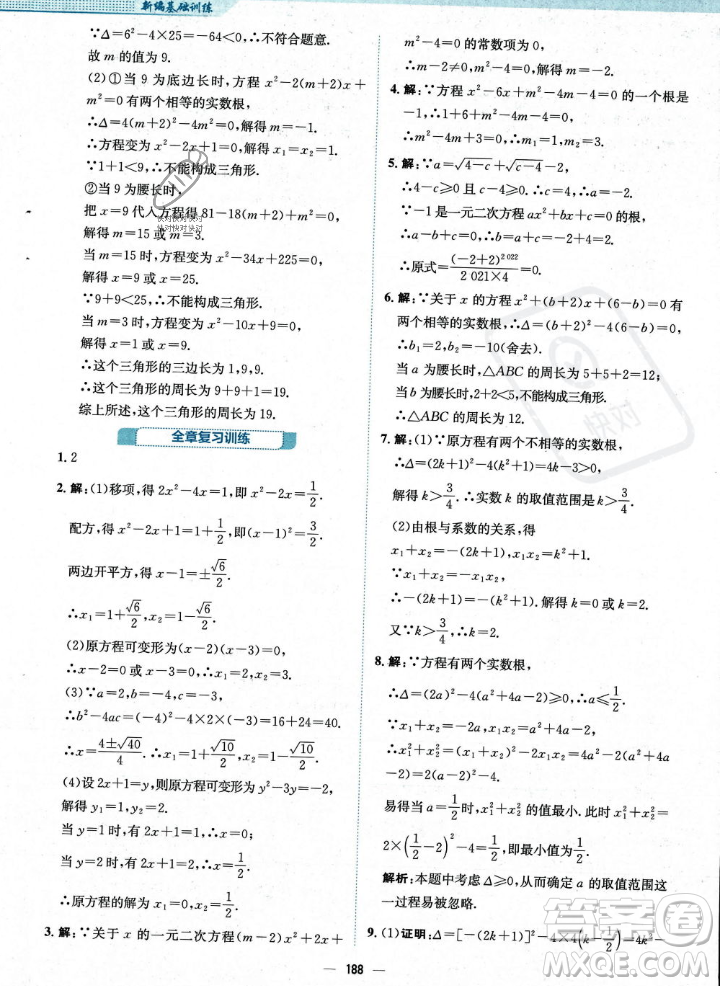 新编基础训练
∴Δ=6²-4×25=-64<0,∴不符合题意.
故 m 的值为 9.
(2)①当 9 为底边长时,方程 x²-2(m+2)x+
m²=0 有两个相等的实数根,
∴Δ=4(m+2)²-4m²=0,解得 m=-1.
∴方程变为 x²-2x+1=0,解得 x₁=x₂=1.
∵1+1<9,∴不能构成三角形.
②当 9 为腰长时,
把 x=9 代入方程得 81-18(m+2)+m²=0,
解得 m=15 或 m=3.
当 m=15 时,方程为 x²-34x+225=0,
解得 x=9 或 x=25.
∵9+9<25,∴不能构成三角形.
当 m=3 时,方程为 x²-10x+9=0,
解得 x=1 或 x=9.
∴这个三角形的三边长为 1,9,9.
∴这个三角形的周长为 9+9+1=19.
综上所述,这个三角形的周长为 19.
全章复习训练
1. 2
2. 解:(1)移项,得 2x²-4x=1,即 x²-2x=1/2.
配方,得 x²-2x+1=1+1/2,即(x-1)²=3/2.
两边开平方,得 x-1=±√6/2.
∴x₁=1+√6/2,x₂=1-√6/2.
(2)原方程可变形为(x-2)(x-3)=0,
∴x-2=0 或 x-3=0.∴x₁=2,x₂=3.
(3)∵a=2,b=-4,c=-3,
∴b²-4ac=(-4)²-4×2×(-3)=16+24=40.
∴x=(4±√40)/4.∴x₁=1+√10/2,x₂=1-√10/2.
(4)设 2x+1=y,则原方程可变形为 y²-3y=-2.
解得 y₁=1,y₂=2.
当 y=1 时,有 2x+1=1,∴x=0;
当 y=2 时,有 2x+1=2,∴x=1/2.
∴原方程的解为 x₁=0,x₂=1/2.
3. 解:∵关于 x 的一元二次方程(m-2)x²+2x+
m²-4=0 的常数项为 0,
∴m-2≠0,m²-4=0,解得 m=-2.
4. 解:∵方程 x²-6x+m²-4m-4=0 的一个根是
-1,∴m²-4m+3=0,∴m₁=1,m₂=3.
5. 解:∵a=√(4-c)+√(c-4)-2,
∴4-c≥0 且 c-4≥0,即 c=4,则 a=-2.
∵-1 是一元二次方程 ax²+bx+c=0 的根,
∴a-b+c=0.∴b=a+c=-2+4=2.
∴原式=(-2+2)²⁰²²/(2 021×4)=0.
6. 解:∵关于 x 的方程 x²+(b+2)x+(6-b)=0 有
两个相等的实数根,∴Δ=(b+2)²-4(6-b)=0,
∴b₁=2,b₂=-10(舍去).
当 a 为腰长时,△ABC 的周长为 5+5+2=12;
当 b 为腰长时,2+2<5,不能构成三角形.
∴△ABC 的周长为 12.
7. 解:(1)∵原方程有两个不相等的实数根,
∴Δ=(2k+1)²-4(k²+1)=4k-3>0,
解得 k>3/4.∴实数 k 的取值范围是 k>3/4.
(2)由根与系数的关系,得
x₁+x₂=-(2k+1),x₁x₂=k²+1.
∵x₁+x₂=-x₁x₂,
∴-(2k+1)=-(k²+1).解得 k=0 或 k=2.
又∵k>3/4,∴k=2.
8. 解:∵方程有两个实数根,
∴Δ=(2a)²-4(a²+4a-2)≥0,∴a≤1/2.
又∵x₁+x₂=-2a,x₁x₂=a²+4a-2,
∴x₁²+x₂²=(x₁+x₂)²-2x₁x₂=2(a-2)²-4.
易得当 a=1/2时,x₁²+x₂² 的值最小.此时 x₁²+x₂²=
2×(1/2-2)²-4=1/2,即最小值为1/2.
解析:本题中考虑 Δ≥0,从而确定 a 的取值范围这
一过程易被忽略.
9. (1)证明:∵Δ=[-(2k+1)]²-4×4(k-1/2)=4k²-
188
快对
答案圈
MXQE.COM